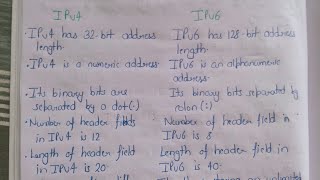 IPv4 IPv6
• IPv4 has 32-bit address IPv6 has 128-bit address
length length.
• IPv4 is a numeric address. IPv6 is an alphanumeric
address.
• Its binary bits are Its binary bits separated by
separated by a dot(.) colon (:)
• Number of header fields Number of header field in
in IPv4 is 12 IPv6 is 8
• Length of header field Length of header field in
in IPv4 is 20 IPv6 is 40.